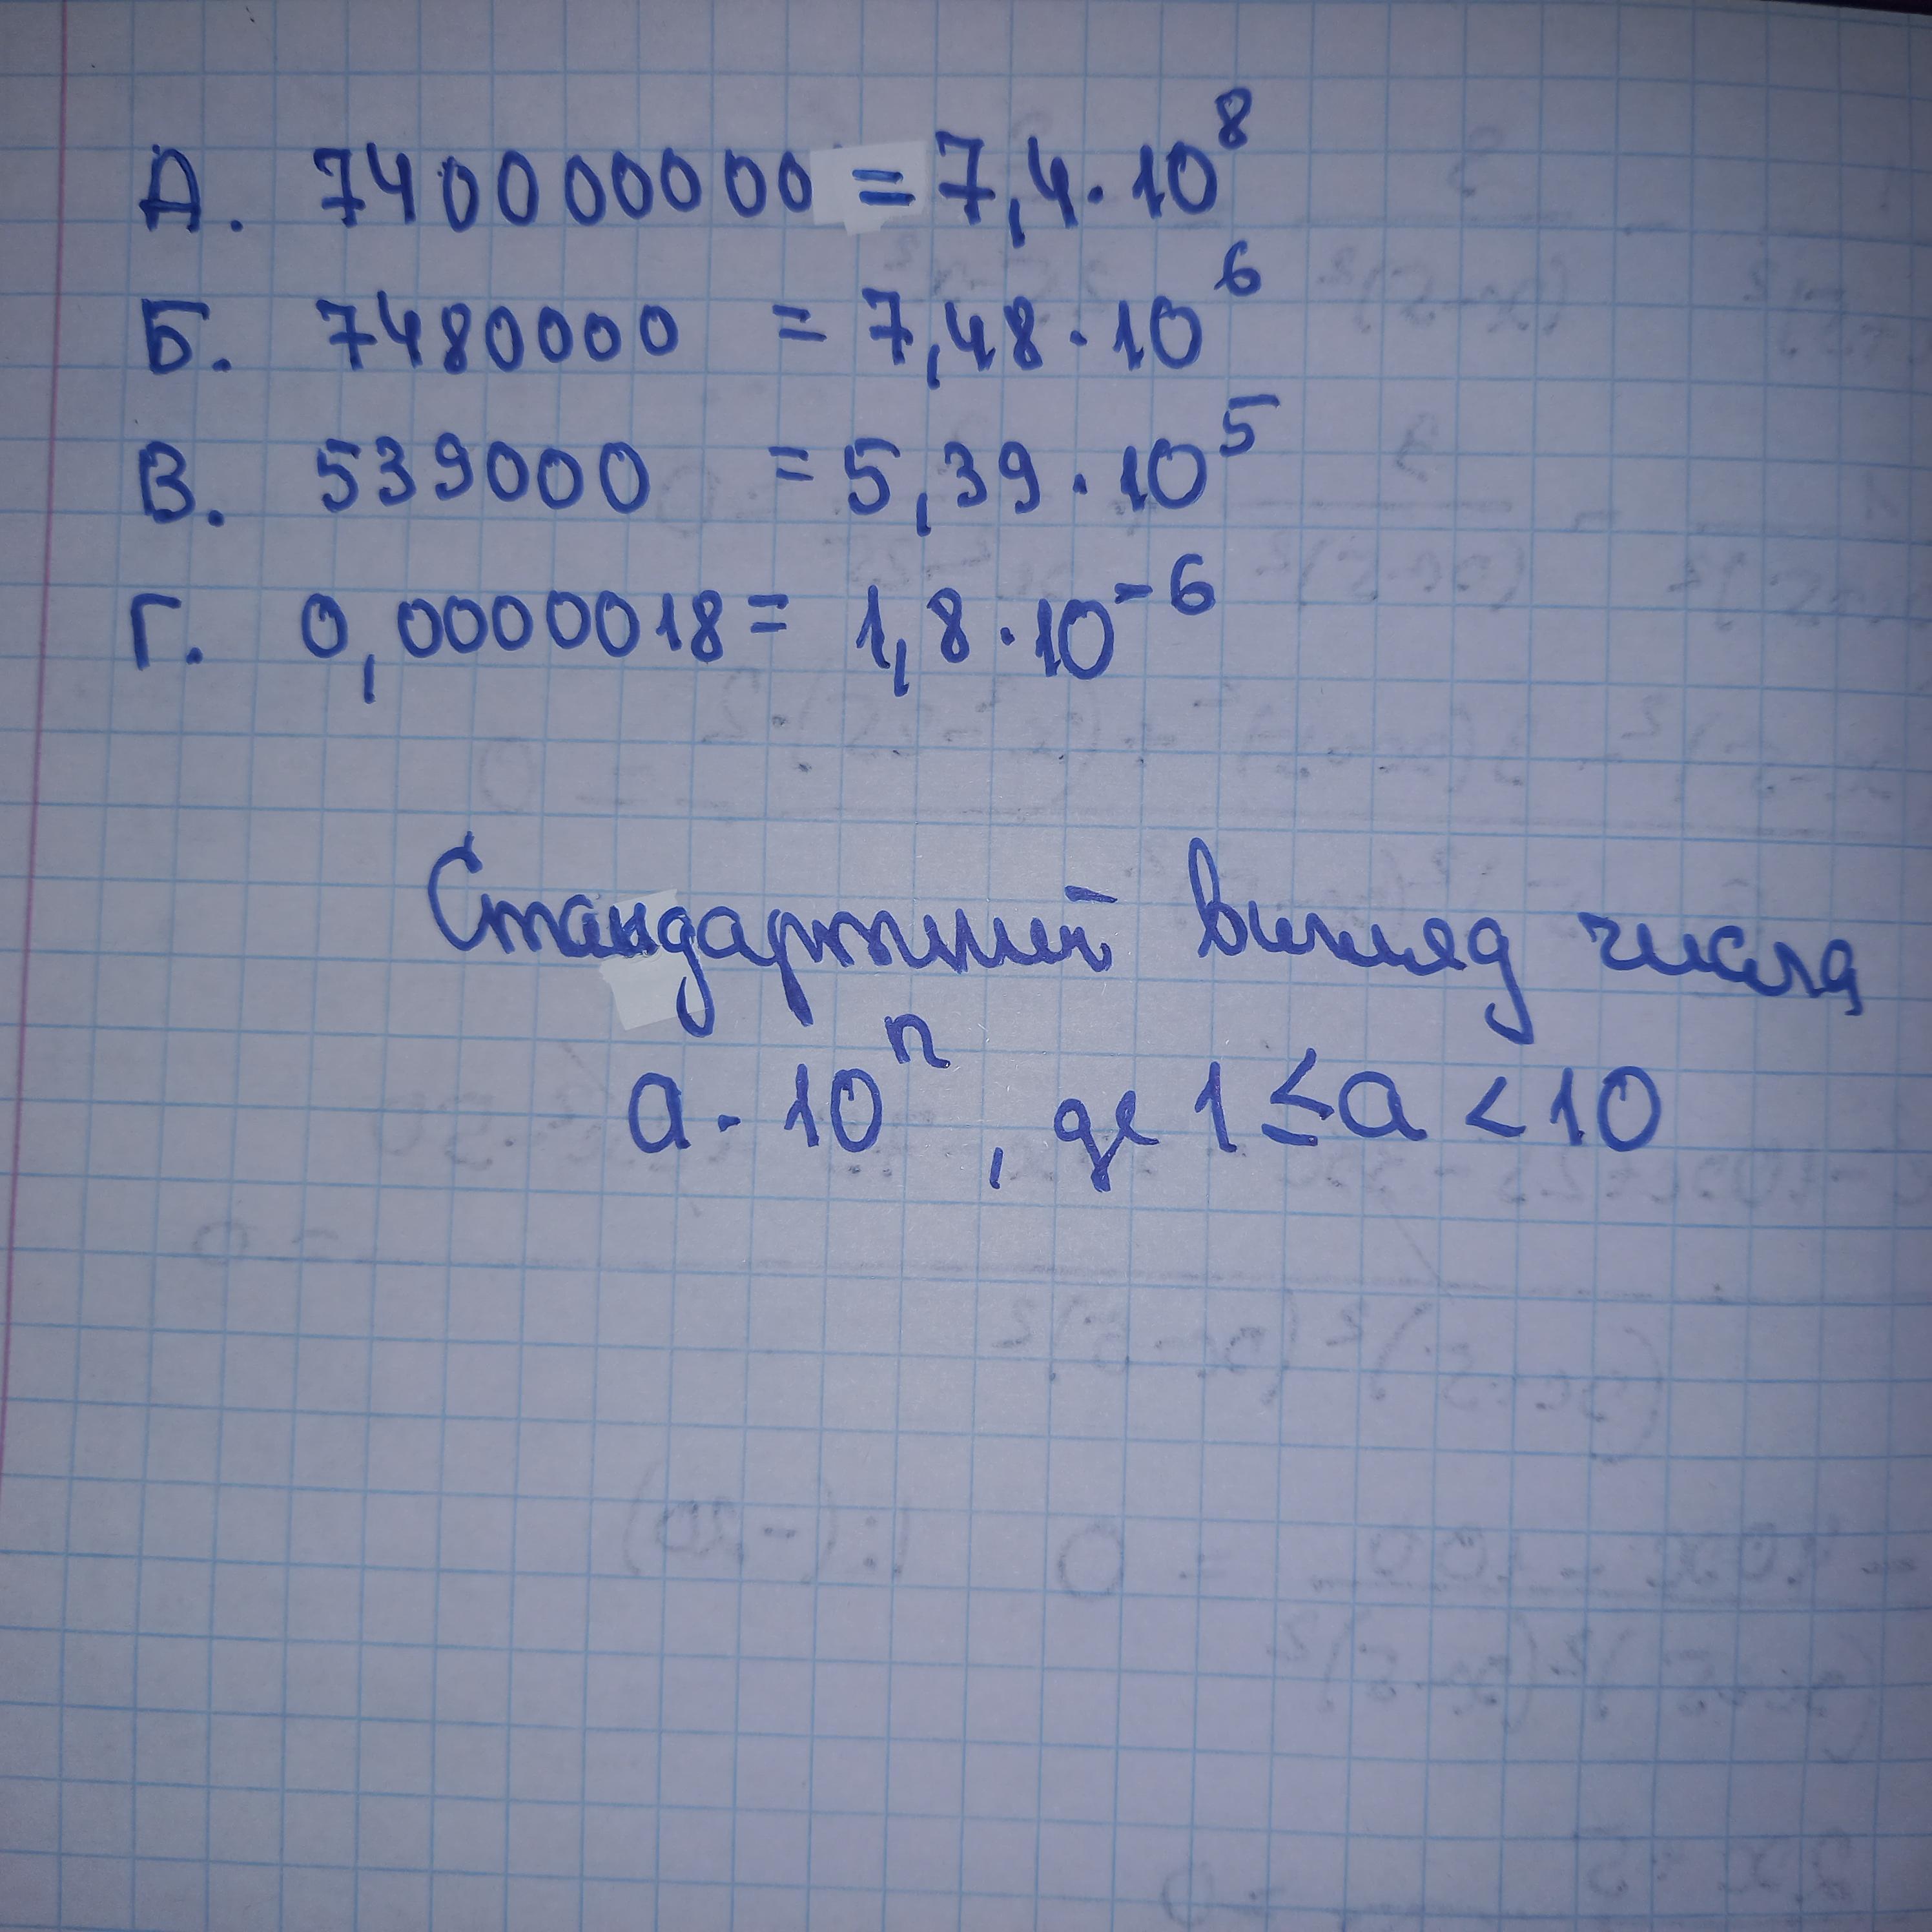 А. 740000000 = 7,4·10⁸
Б. 7480000 = 7,48·10⁶
В. 539000 = 5,39·10⁵
Г. 0,0000018 = 1,8·10⁻⁶
Стандартний вигляд числа
a·10ⁿ, де 1≤a<10